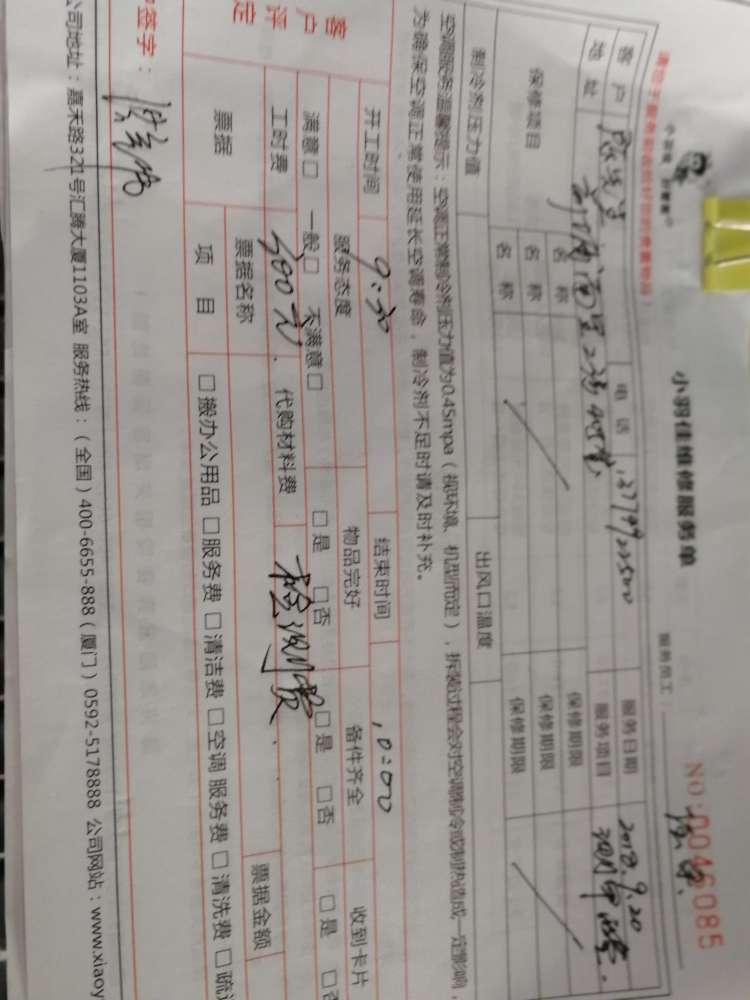 小羽佳维修服务单
NO:0046085
服务员工：
请给予服务和监督好您的贵重物品！
客户 陈先生 电话 服务日期 2018.9.20
地址 服务项目
保修项目 名称 保修期限
名称 保修期限
名称 保修期限
制冷剂压力值 出风口温度
空调服务温馨提示：空调正常制冷剂压力值为0.45mpa（视环境、机型而定），拆装过程会对空调制冷或制热造成一定影响，
为确保空调正常使用延长空调寿命，制冷剂不足时请及时补充。
开工时间 9:30 结束时间 10:00
客户评定 服务态度 物品完好 备件齐全 收到卡片
满意□ 一般□ 不满意□ □是 □否 □是 □否 □是 □否
工时费 200元 代购材料费 检测费
票据 票据名称 票据金额
项目 □搬办公用品 □服务费 □清洁费 □空调 服务费 □清洗费 □疏
签字：
公司地址：嘉禾路321号汇腾大厦1103A室 服务热线：（全国）400-6655-888（厦门）0592-5178888 公司网站：www.xiaoy